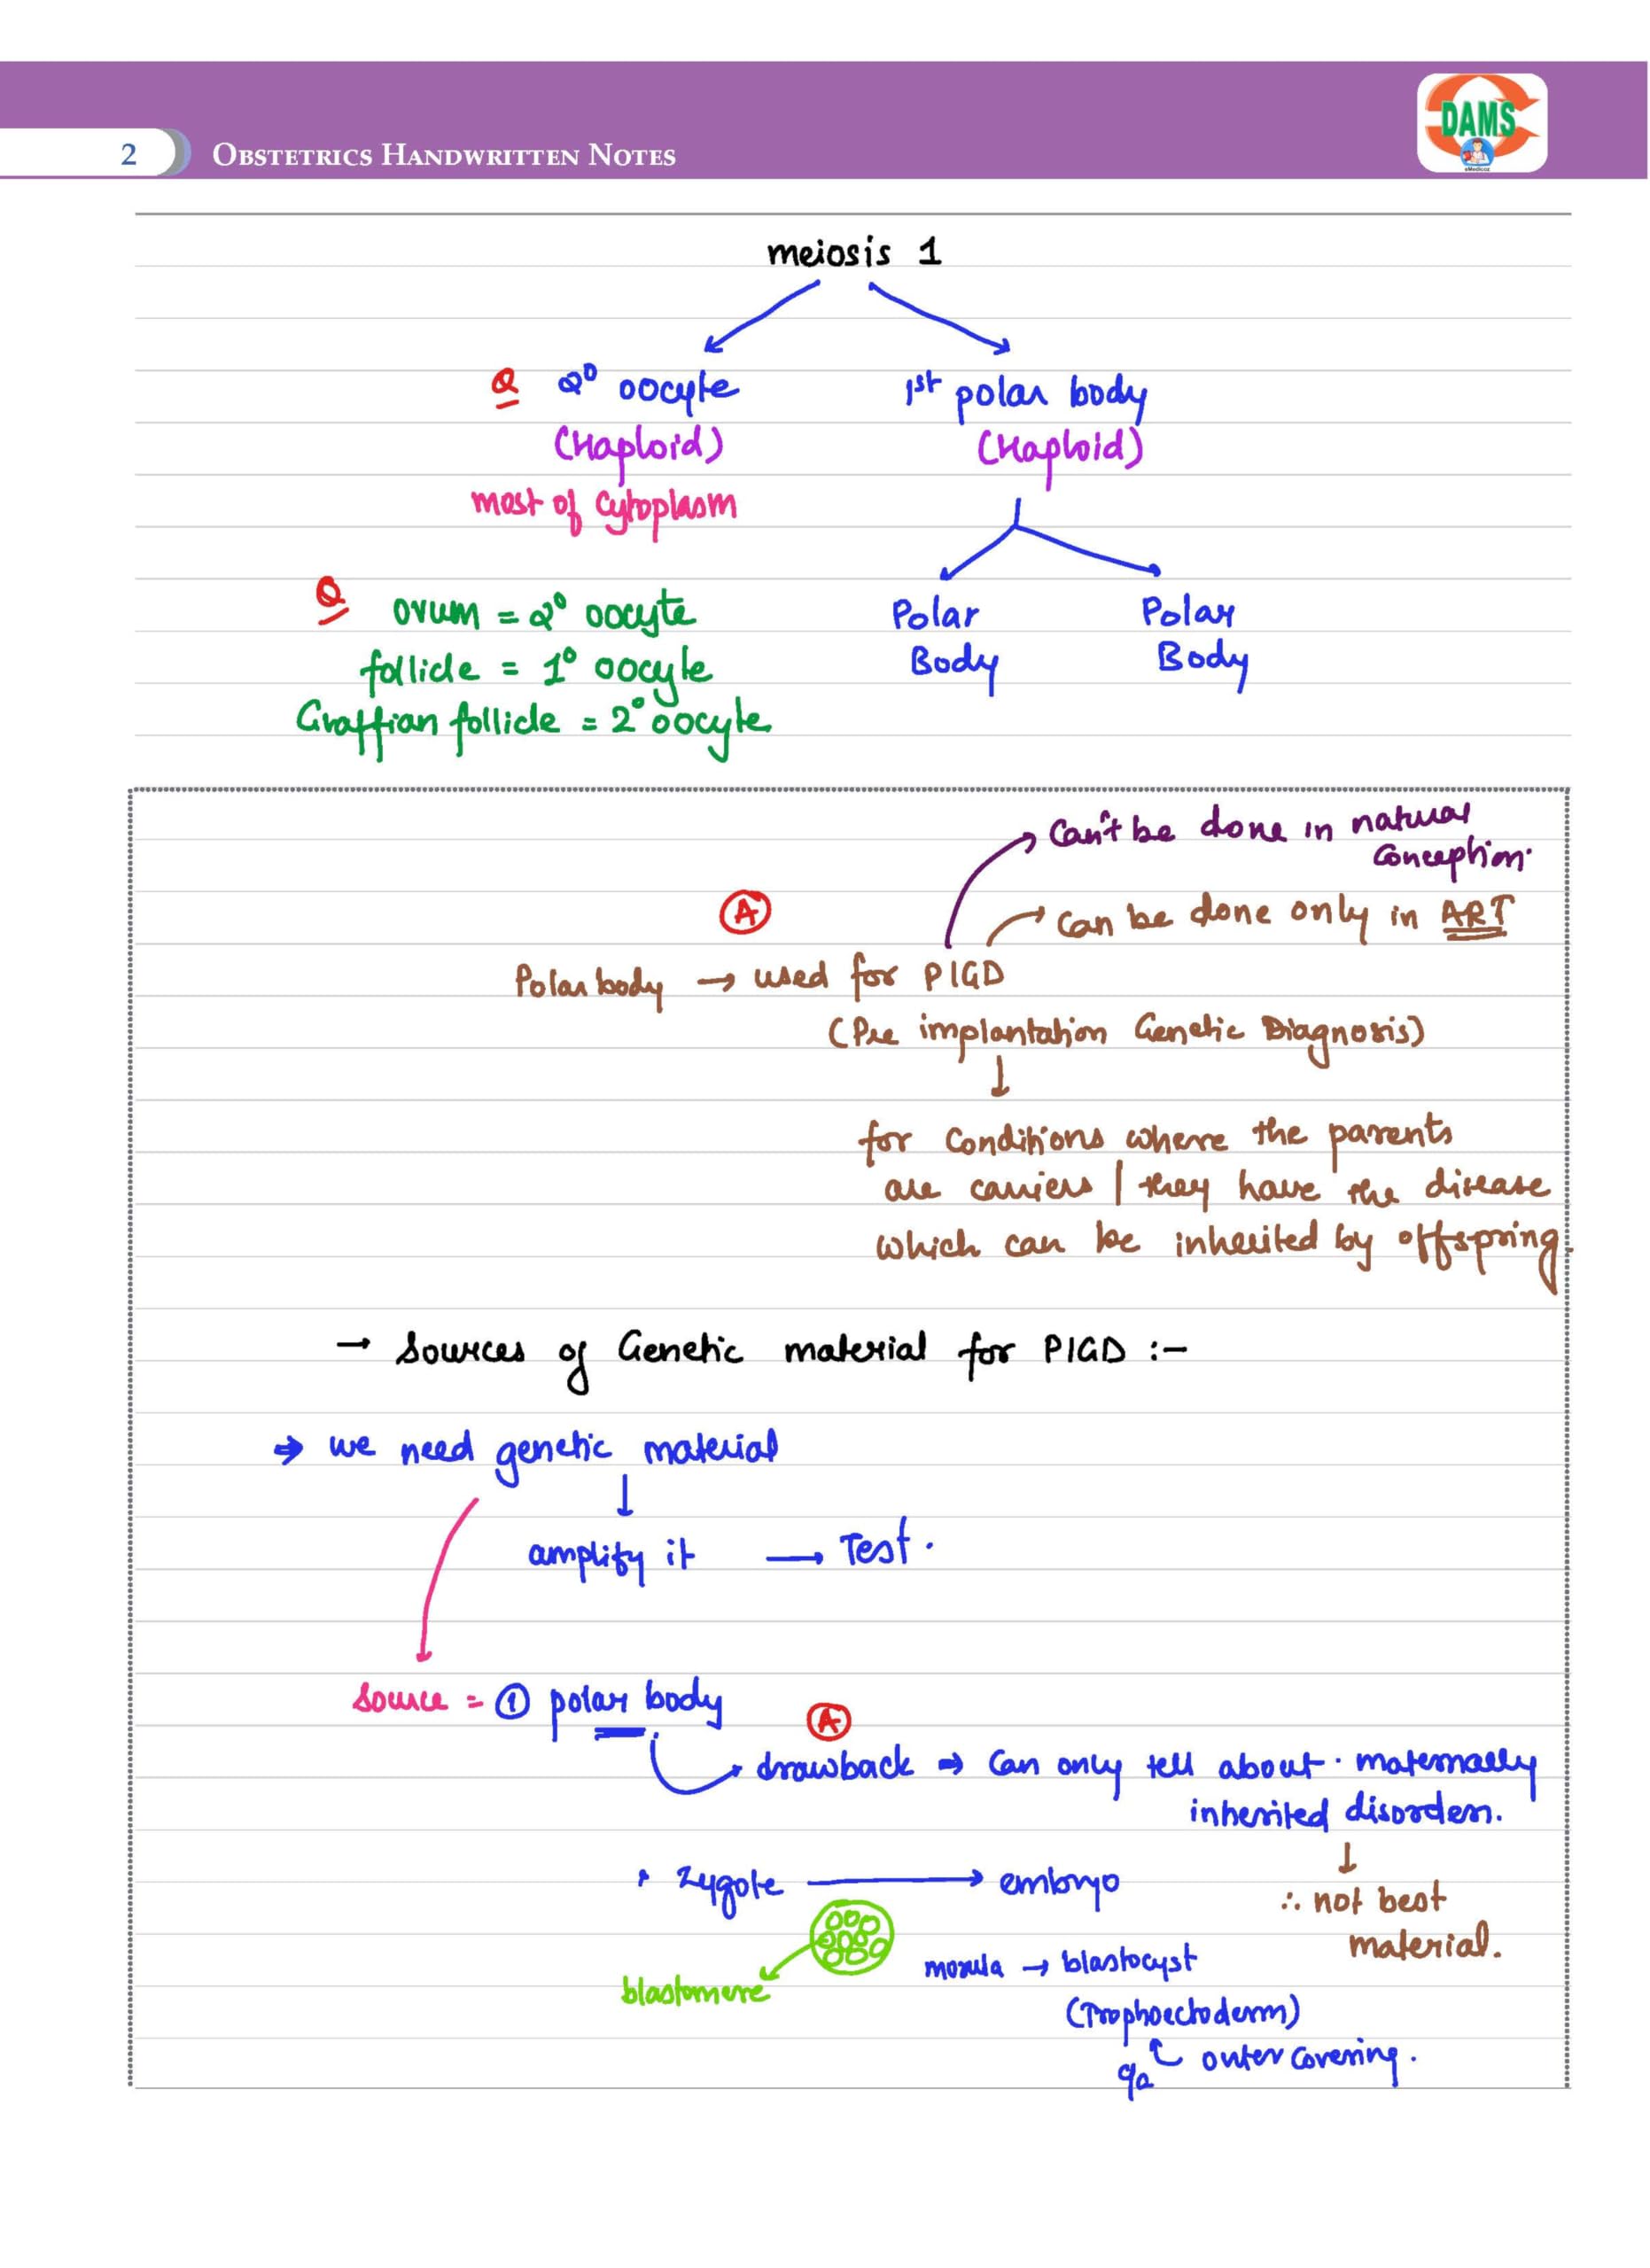 2 OBSTETRICS HANDWRITTEN NOTES
DAMS
eMedicoz
meiosis 1
Q 2⁰ oocyte
(Haploid)
most of cytoplasm
1st polar body
(Haploid)
Polar Body
Polar Body
Q ovum = 2⁰ oocyte
follicle = 1⁰ oocyte
Graffian follicle = 2⁰ oocyte
Can't be done in natural
conception.
A
can be done only in ART
Polar body → used for PIGD
(Pre implantation Genetic Diagnosis)
↓
for conditions where the parents
are carriers / they have the disease
which can be inherited by offspring.
→ Sources of Genetic material for PIGD :-
⇒ we need genetic material
↓
amplify it → Test.
Source = ① polar body
A
drawback ⇒ Can only tell about maternally
inherited disorders.
↓
∴ not best
material.
• Zygote → embryo
blastomere
morula → blastocyst
(Trophoectoderm)
outer covering.